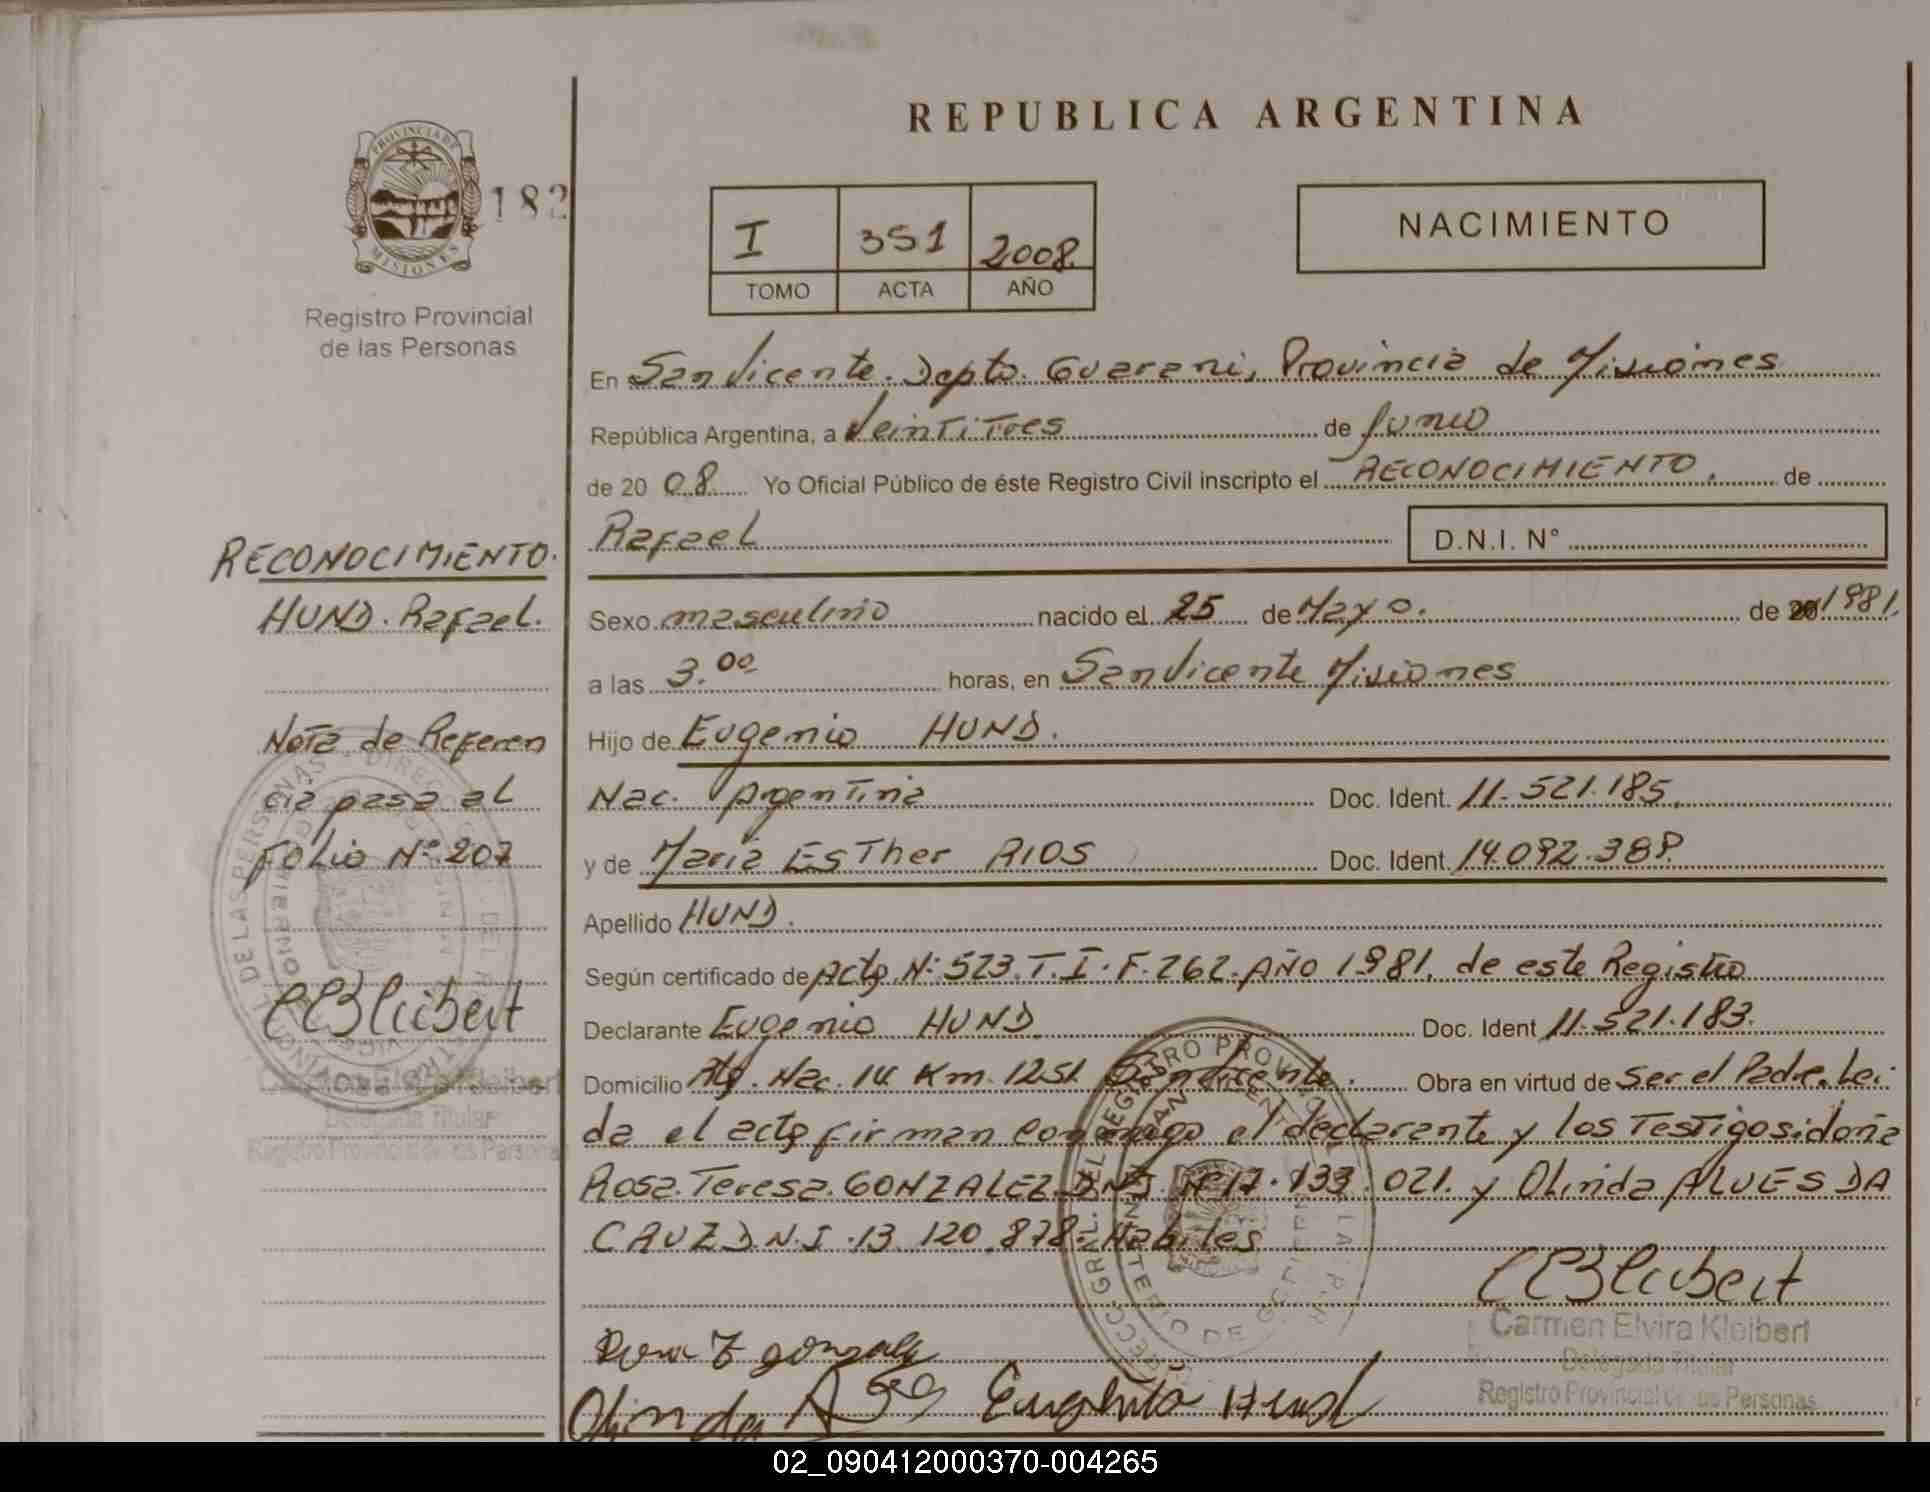 REPUBLICA ARGENTINA
PROVINCIA DE
MISIONES
182
Registro Provincial
de las Personas
I 351 2008
TOMO ACTA AÑO
NACIMIENTO
En San Vicente. Depto. Guarani, Provincia de Misiones
República Argentina, a Veintitres de Junio
de 20 08 Yo Oficial Público de éste Registro Civil inscripto el RECONOCIMIENTO. de
Rafael D.N.I. N°
Sexo masculino nacido el 25 de Mayo. de 20 1981.
a las 3.00 horas, en San Vicente Misiones
Hijo de Eugenio HUND.
Nac. Argentina Doc. Ident. 11.521.185.
y de Maria Esther RIOS Doc. Ident. 14.092.388.
Apellido HUND.
Según certificado de Acta N: 523. T. I. F. 262. AÑO 1981. de este Registro
Declarante Eugenio HUND Doc. Ident 11.521.183.
Domicilio Rta. Nac. 14 Km. 1251 San Vicente. Obra en virtud de ser el Padre. Lei
da el acta firman conmigo el declarante y los Testigos idone
Rosa. Teresa. GONZALEZ. DNI. N° 17.133.021. y Olinda ALVES DA
CRUZ D.N.I. 13.120.878. Habiles
RECONOCIMIENTO.
HUND. Rafael.
Nota de Referen
cia pasa al
Folio N° 207
Carmen Elvira Kleibert
Delegada Titular
Registro Provincial de las Personas
Rosa T gonzalez
Olinda
Hund
Carmen Elvira Kleibert
Delegada Titular
Registro Provincial de las Personas
02_090412000370-004265